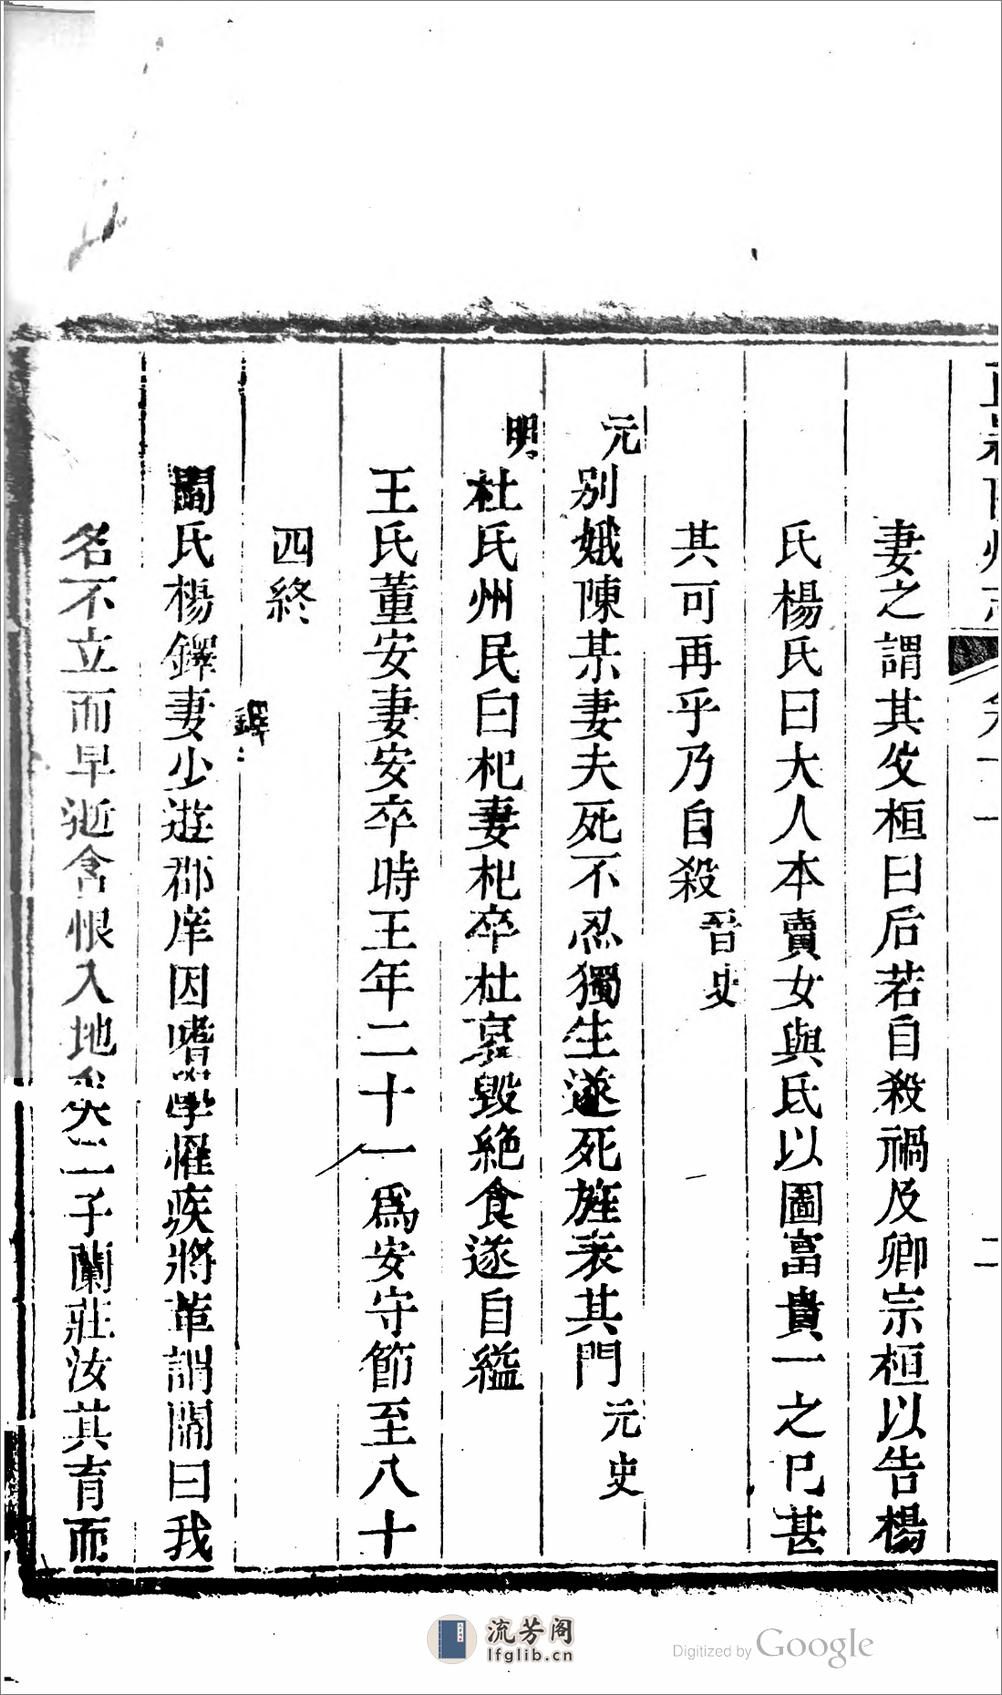 妻之謂其父桓曰后若自殺禍及卿宗桓以告楊
氏楊氏曰大人本賣女與氐以圖富貴一之已甚
其可再乎乃自殺晉史
元
別娥陳某妻夫死不忍獨生遂死旌表其門元史
明
杜氏州民曰杞妻杞卒杜哀毀絕食遂自縊
王氏董安妻安卒時王年二十一爲安守節至八十
四終
閻氏楊鐸妻少遊郡庠因嗜學罹疾將革謂閻曰我
鐸
名不立而早逝含恨入地矣二子蘭莊汝其育而
二
流芳阁
lfglib.cn
Digitized by Google